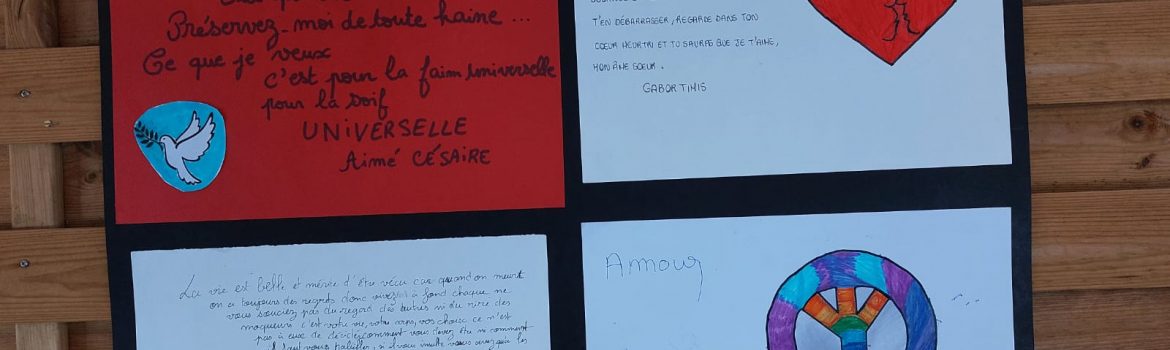 Préservez-moi de toute haine ...
Ce que je veux
c'est pour la faim universelle
pour la soif
UNIVERSELLE
Aimé CÉSAIRE
T'EN DÉBARRASSER, REGARDE DANS TON
COEUR MEURTRI ET TU SAURAS QUE JE T'AIME,
MON ÂME SOEUR.
GABOR TIMIS
La vie est belle et mérite d'être vécu car quand on meurt
on a toujours des regrets donc vivez à fond chaque ne
vous souciez pas du regard des autres ni du rire des
moqueurs c'est votre vie, votre corps, vos choix ce n'est
pas à eux de décider comment vous devez être ni comment
vous habiller, si vous
Amour